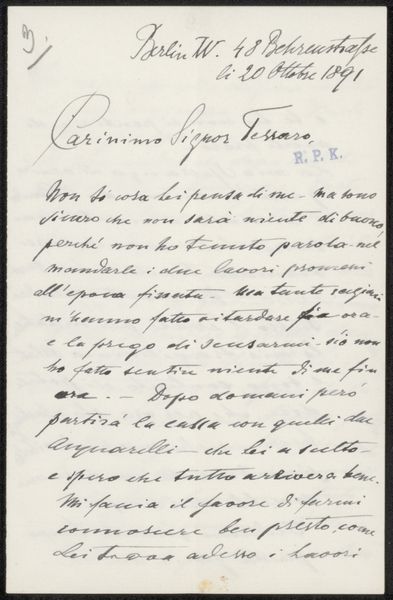 3)
Berlin W. 48 Behrenstraße
li 20 Ottobre 1891
Carissimo Signor Tessaro,
R. P. K.
Non so cosa lei pensa di me - ma sono
sicuro che non sarà niente di buono,
perché non ho tenuto parola - nel
mandarle i due lavori promessi
all'epoca fissata - ma tante ragioni
m'hanno fatto ritardare fin ora -
e la prego di scusarmi - s'io non
ho fatto sentire niente di me fin
ora. - Dopo domani però
partirà la cassa con quelli due
acquarelli - che lei a scelto -
e spero che tutto arriverà bene.
Mi faccia il favore di farmi
connoscere ben presto, come
Lei trova adesso i lavori